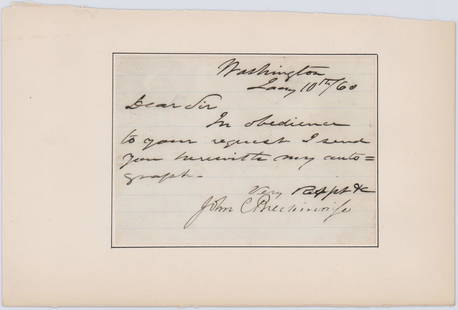 Washington
Jany 10th/60
Dear Sir
In obedience
to your request I send
you herewith my auto=
graph.
Very Respt &c
John C Breckinridge